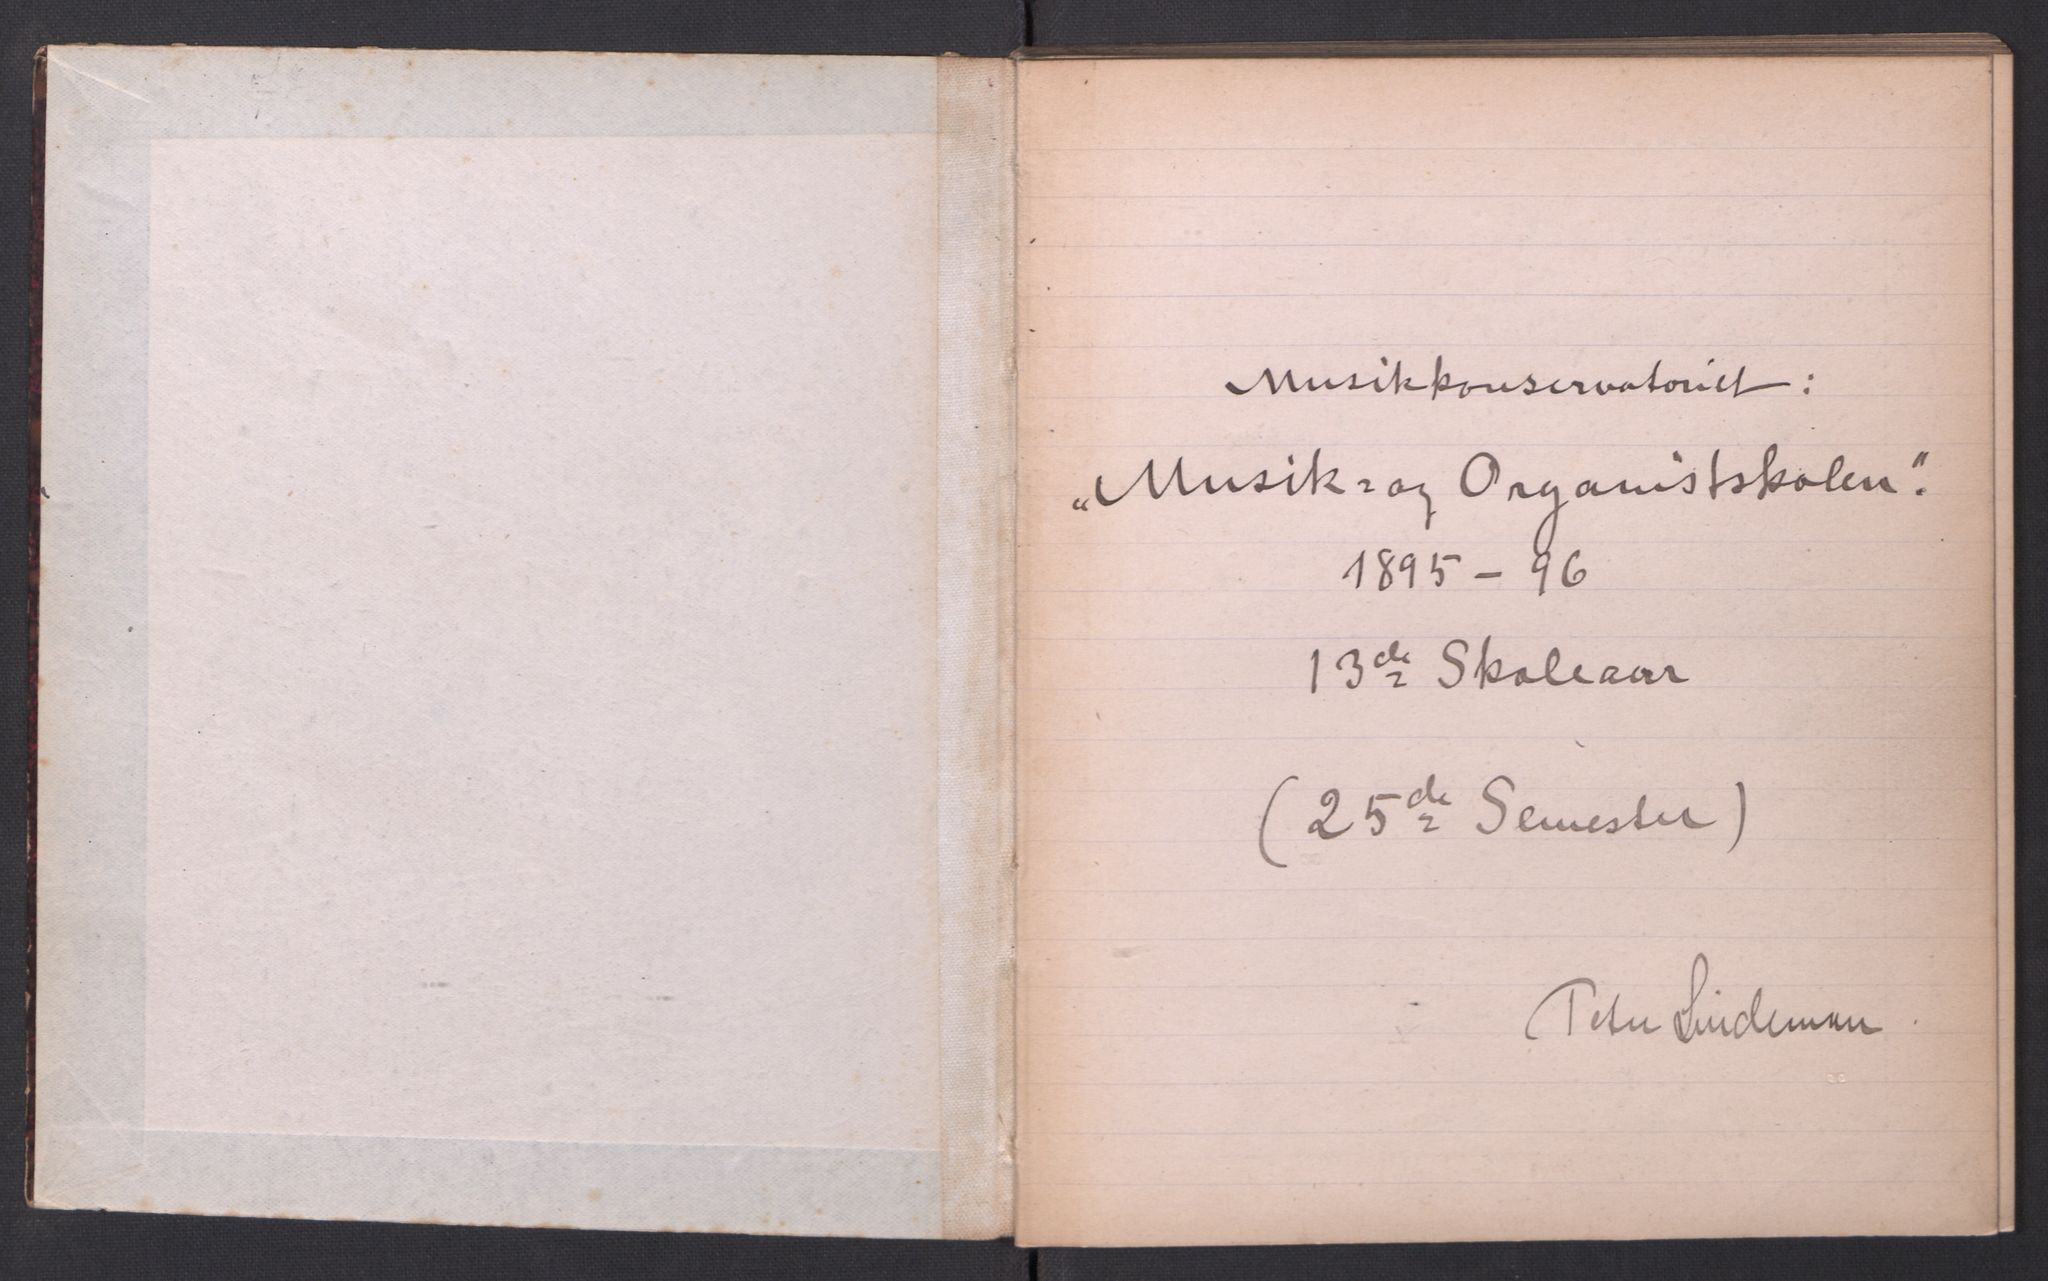 Musikkonservatoriet:
„Musik- og Organistskolen“.
1895 – 96
13de Skoleaar
(25de Semester)
Peter Lindeman